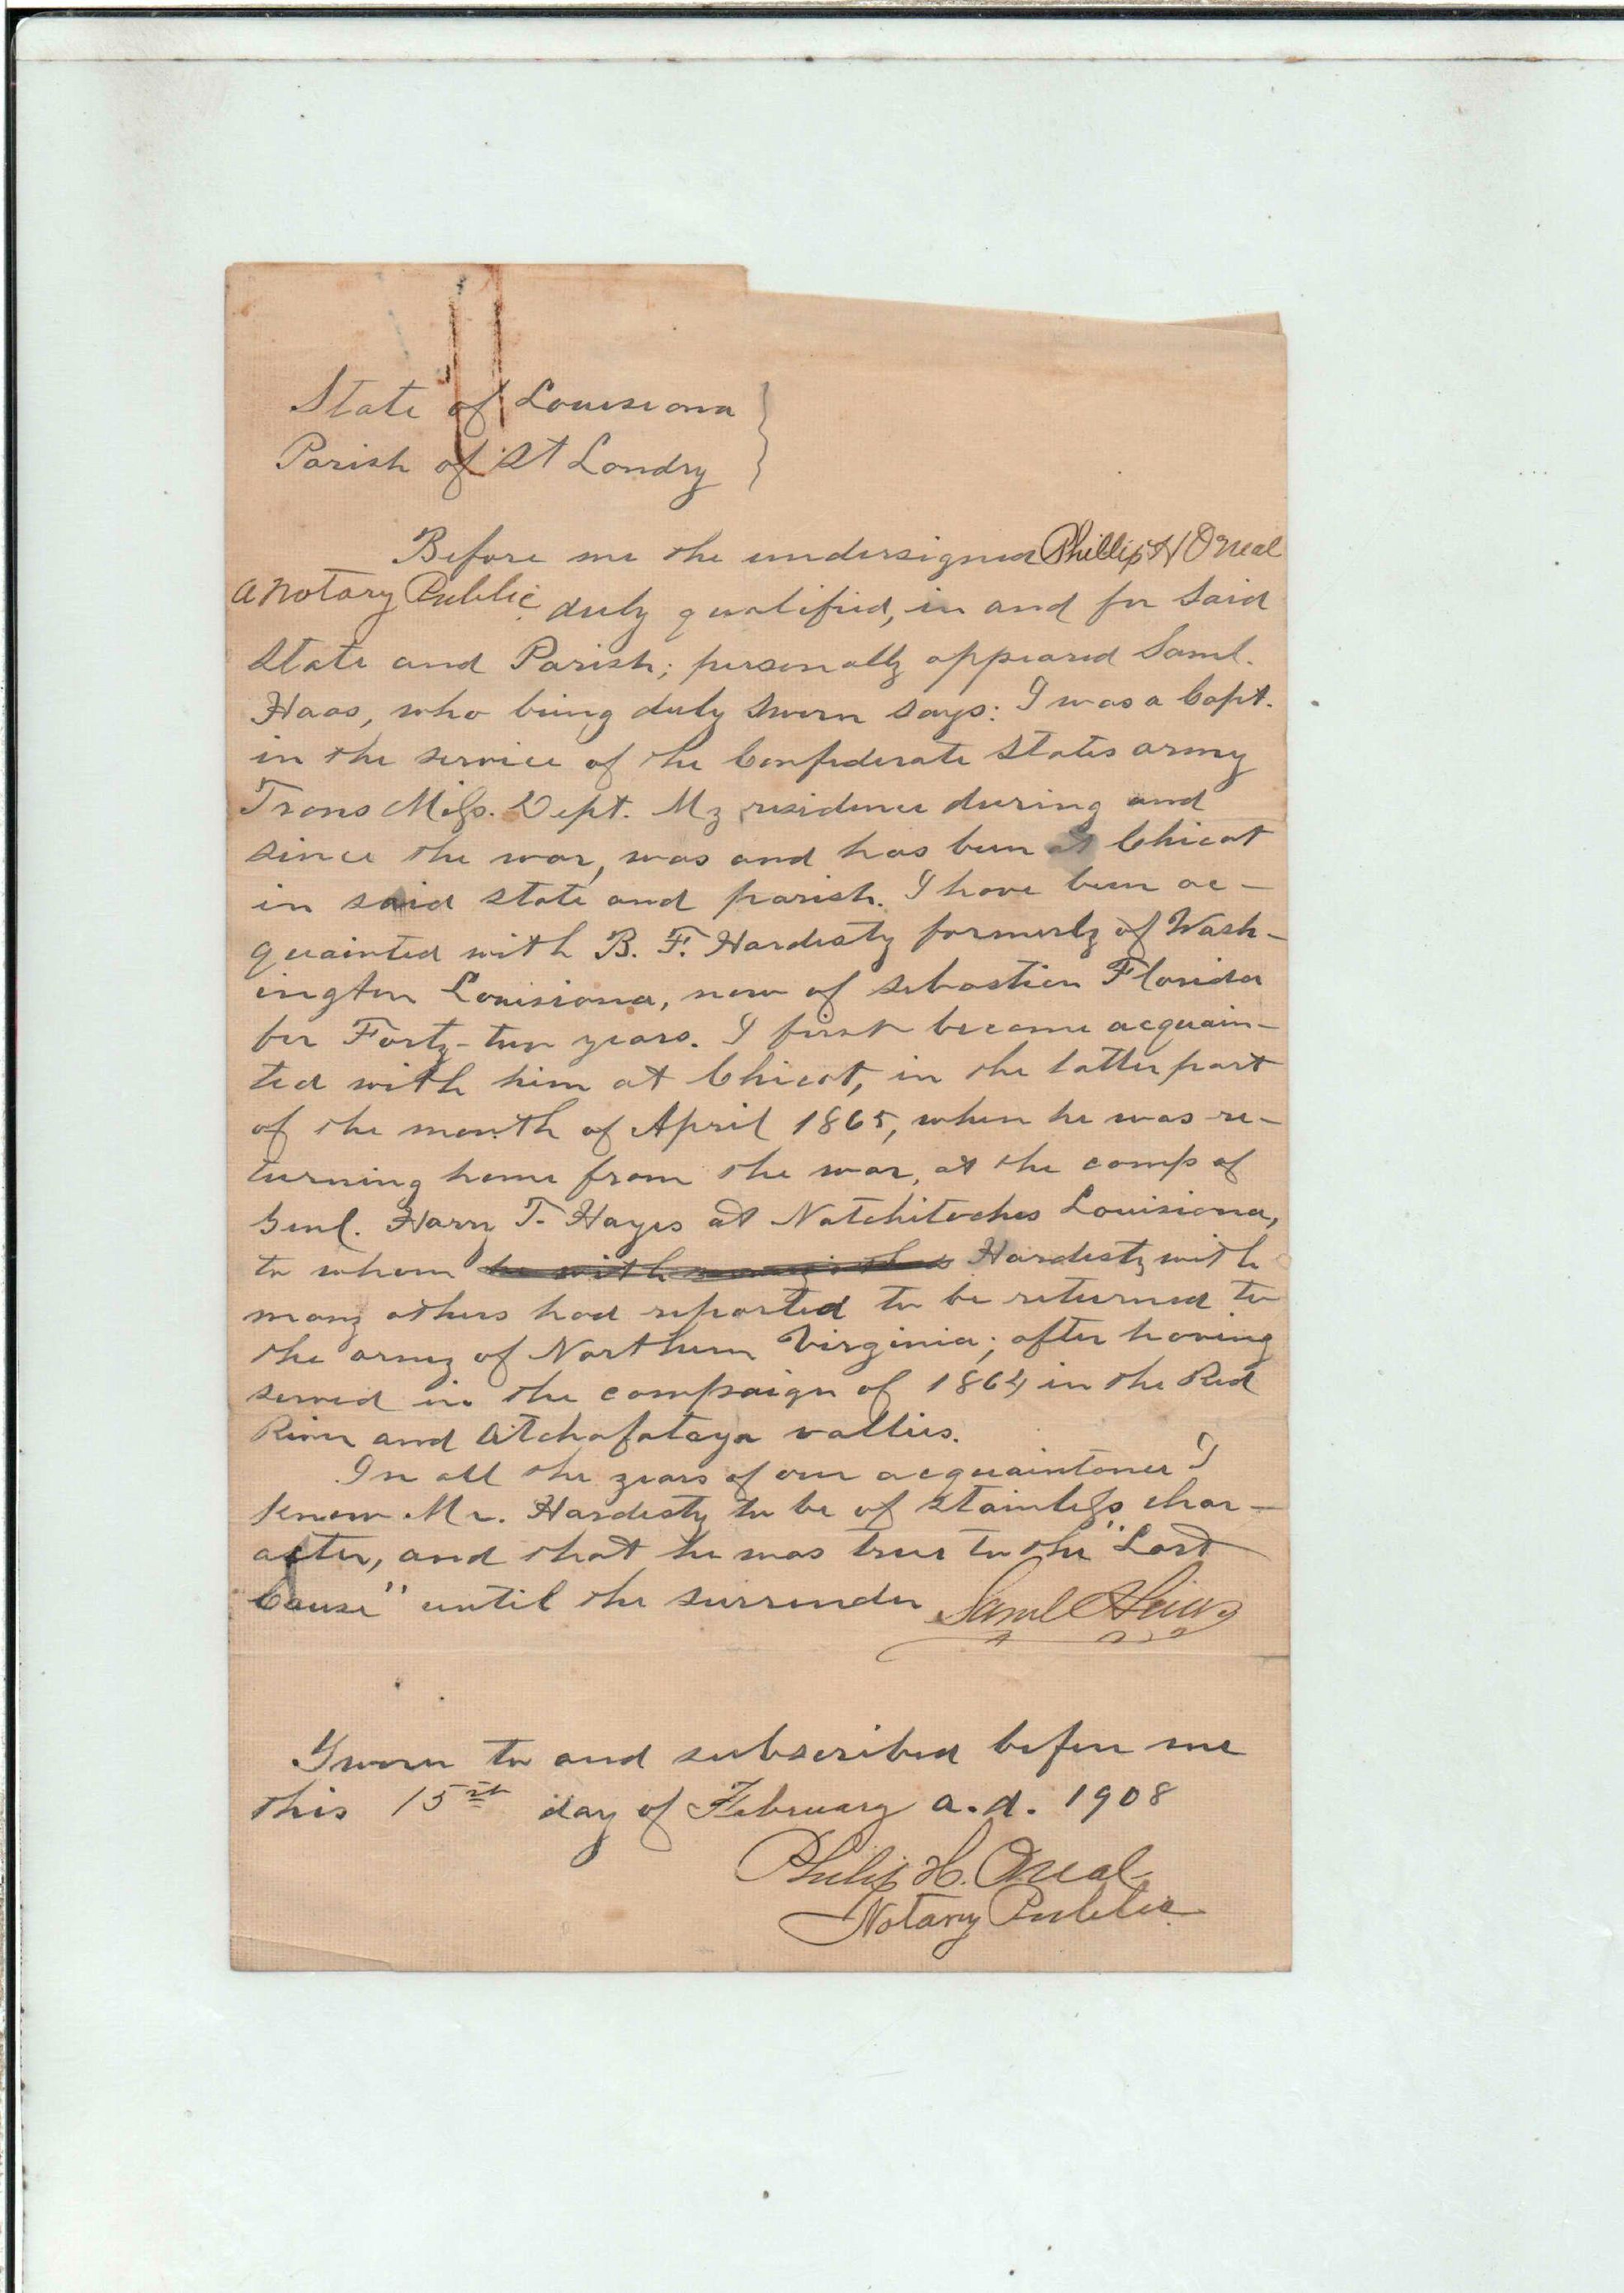 State of Louisiana
Parish of St Landry
Before me the undersigned Phillip H ONeal
a Notary Public, duly qualified, in and for said
State and Parish; personally appeared Saml.
Haas, who being duly sworn says: I was a Capt.
in the service of the Confederate States army
Trans Miss. Dept. My residence during and
since the war, was and has been at Chicot
in said state and parish. I have been ac-
quainted with B. F. Hardesty formerly of Wash-
ington Louisiana, now of Sebastien Florida
for Forty-two years. I first became acquain-
ted with him at Chicot, in the latter part
of the month of April 1865, when he was re-
turning home from the war, at the camp of
Genl. Harry T. Hayes at Natchitoches Louisiana,
to whom he with many others Hardesty with
many others had reported to be returned to
the army of Northern Virginia; after having
served in the campaign of 1864 in the Red
River and Atchafalaya vallies.
In all the years of our acquaintance I
know Mr. Hardesty to be of stainless char-
acter, and that he was true to the "Lost
Cause" until the surrender Saml Haas
Sworn to and subscribed before me
this 15th day of February a.d. 1908
Philip H. ONeal
Notary Public